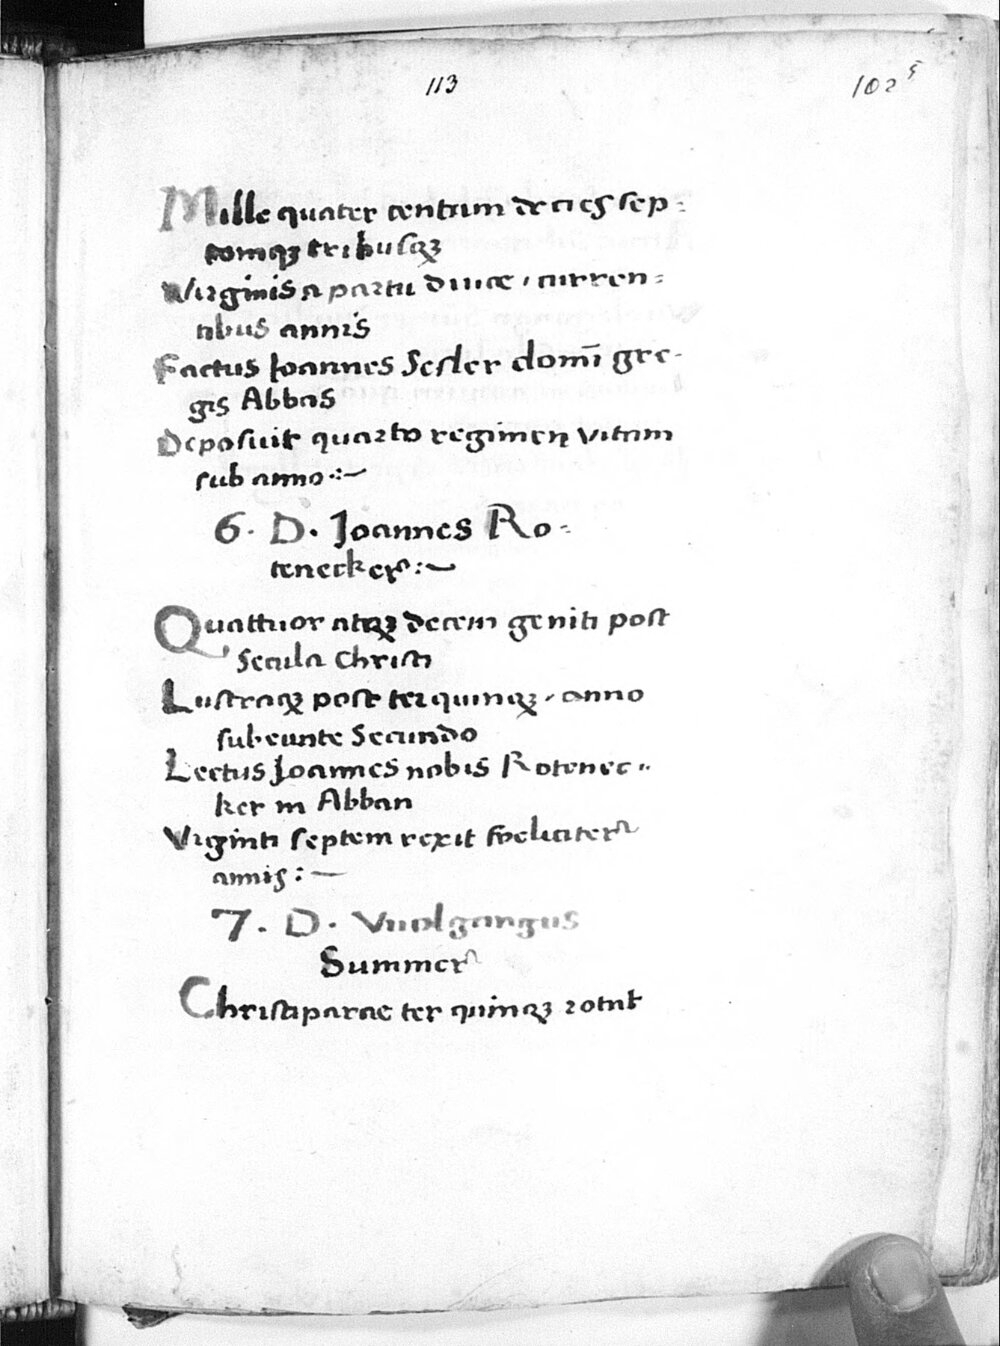 113
102 5
Mille quater centum decies sep=
temqꝫ tribusqꝫ
Virginis a partu duice, curren=
tibus annis
Factus Joannes Sesler domī gre-
gis Abbas
Deposuit quarto regimen vitam
sub anno :~
6. D. Joannes Ro=
tenecker :~
Quattuor atqꝫ decem geniti post
Secula Christi
Lustraqꝫ post ter quinqꝫ, anno
subeunte Secundo
Lectus Joannes nobis Rotenec=
ker in Abban
Virginti septem rexit foeliciter
annis :~
7. D. Vuolgangus
Summer
Christiparae ter quinqꝫ